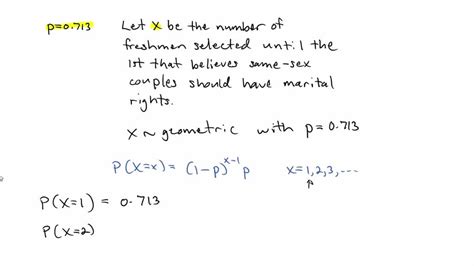 p=0.713 Let X be the number of
freshmen selected until the
1st that believes same-sex
couples should have marital
rights.
X ~ geometric with p = 0.713
P(X=x) = (1-p)^{x-1} p x=1,2,3,...
↑
P(X=1) = 0.713
P(X=2)